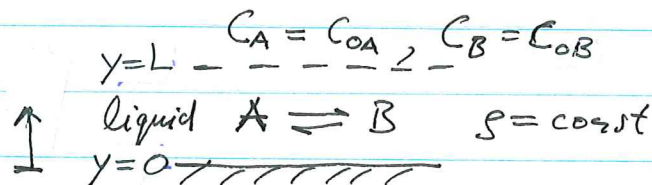 C_A = C_{OA}, C_B = C_{OB}
y=L
liquid A ⇌ B ρ = const
y=0